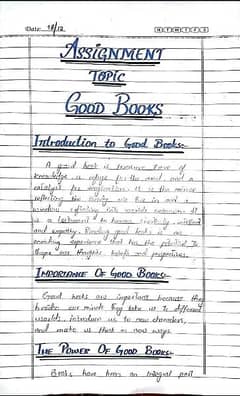 Date: 18/12
M T W T F S S
ASSIGNMENT
TOPIC
GOOD BOOKS
Introduction to Good Books:-
A good book is treasure trove of
knowledge, a refuge for the soul, and a
catalyst for imagination. It is the mirror
reflecting the society we live in and a
window
is a testament to human creativity,
and empathy. Reading good books is an
enriching experience that has the potential to
shape our thoughts, beliefs and perspectives.
IMPORTANCE OF GOOD BOOKS:-
Good books are important because they
our minds they take us to different
worlds, introduce us to new characters,
and make us think in new ways.
THE POWER OF GOOD BOOKS:-
Books have been an integral part